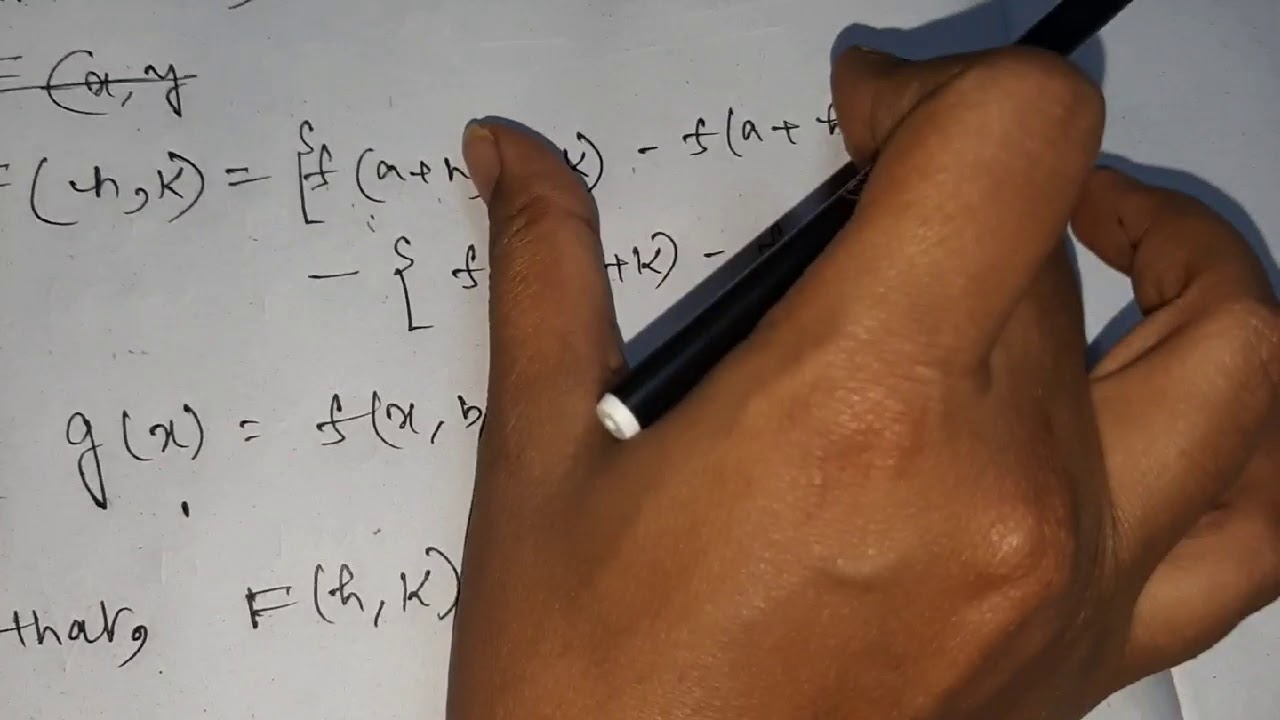 = (x, y
F(h, K) = [f(a+h K) - f(a + h
- [ f +K) -
g(x) = f(x, b
that, F(h, K)